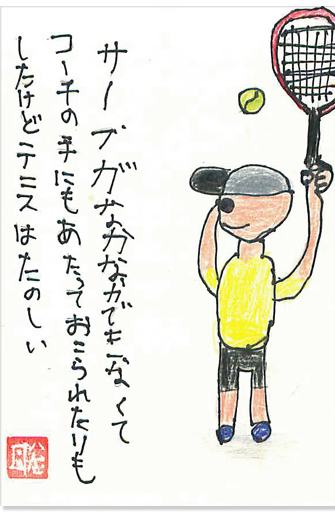 サーブがなかなかできなくて
コーチの手にもあたっておこられたりも
したけどテニスはたのしい